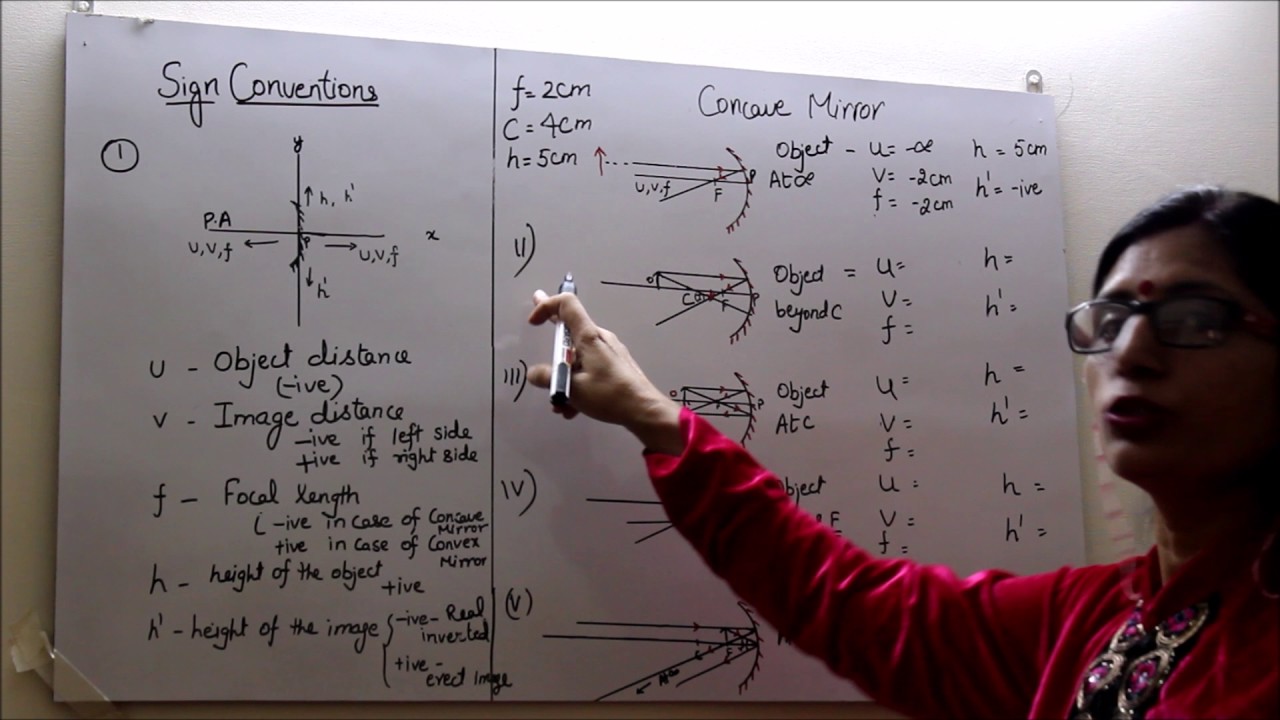 Sign Conventions
①
y
h, h'
P.A
P
x
u,v,f
u,v,f
h'
u - Object distance
(-ive)
v - Image distance
-ive if left side
+ive if right side
f - Focal Length
-ive in case of Concave
Mirror
+ive in case of Convex
Mirror
h - height of the object +ive
h' - height of the image
-ive - Real
inverted
+ive -
erect Image
f= 2cm
C = 4cm
h = 5cm
Concave Mirror
u,v,f
F
P
Object - u= -∞ h = 5cm
At ∞ v = -2cm h' = -ive
f = -2cm
II)
O
C
F
P
Object = u= h =
beyond C v = h' =
f =
III)
O
P
Object u= h =
At C v = h' =
f =
IV)
Object u = h =
F v = h' =
f =
(V)
F